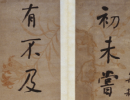 初未嘗
有不及